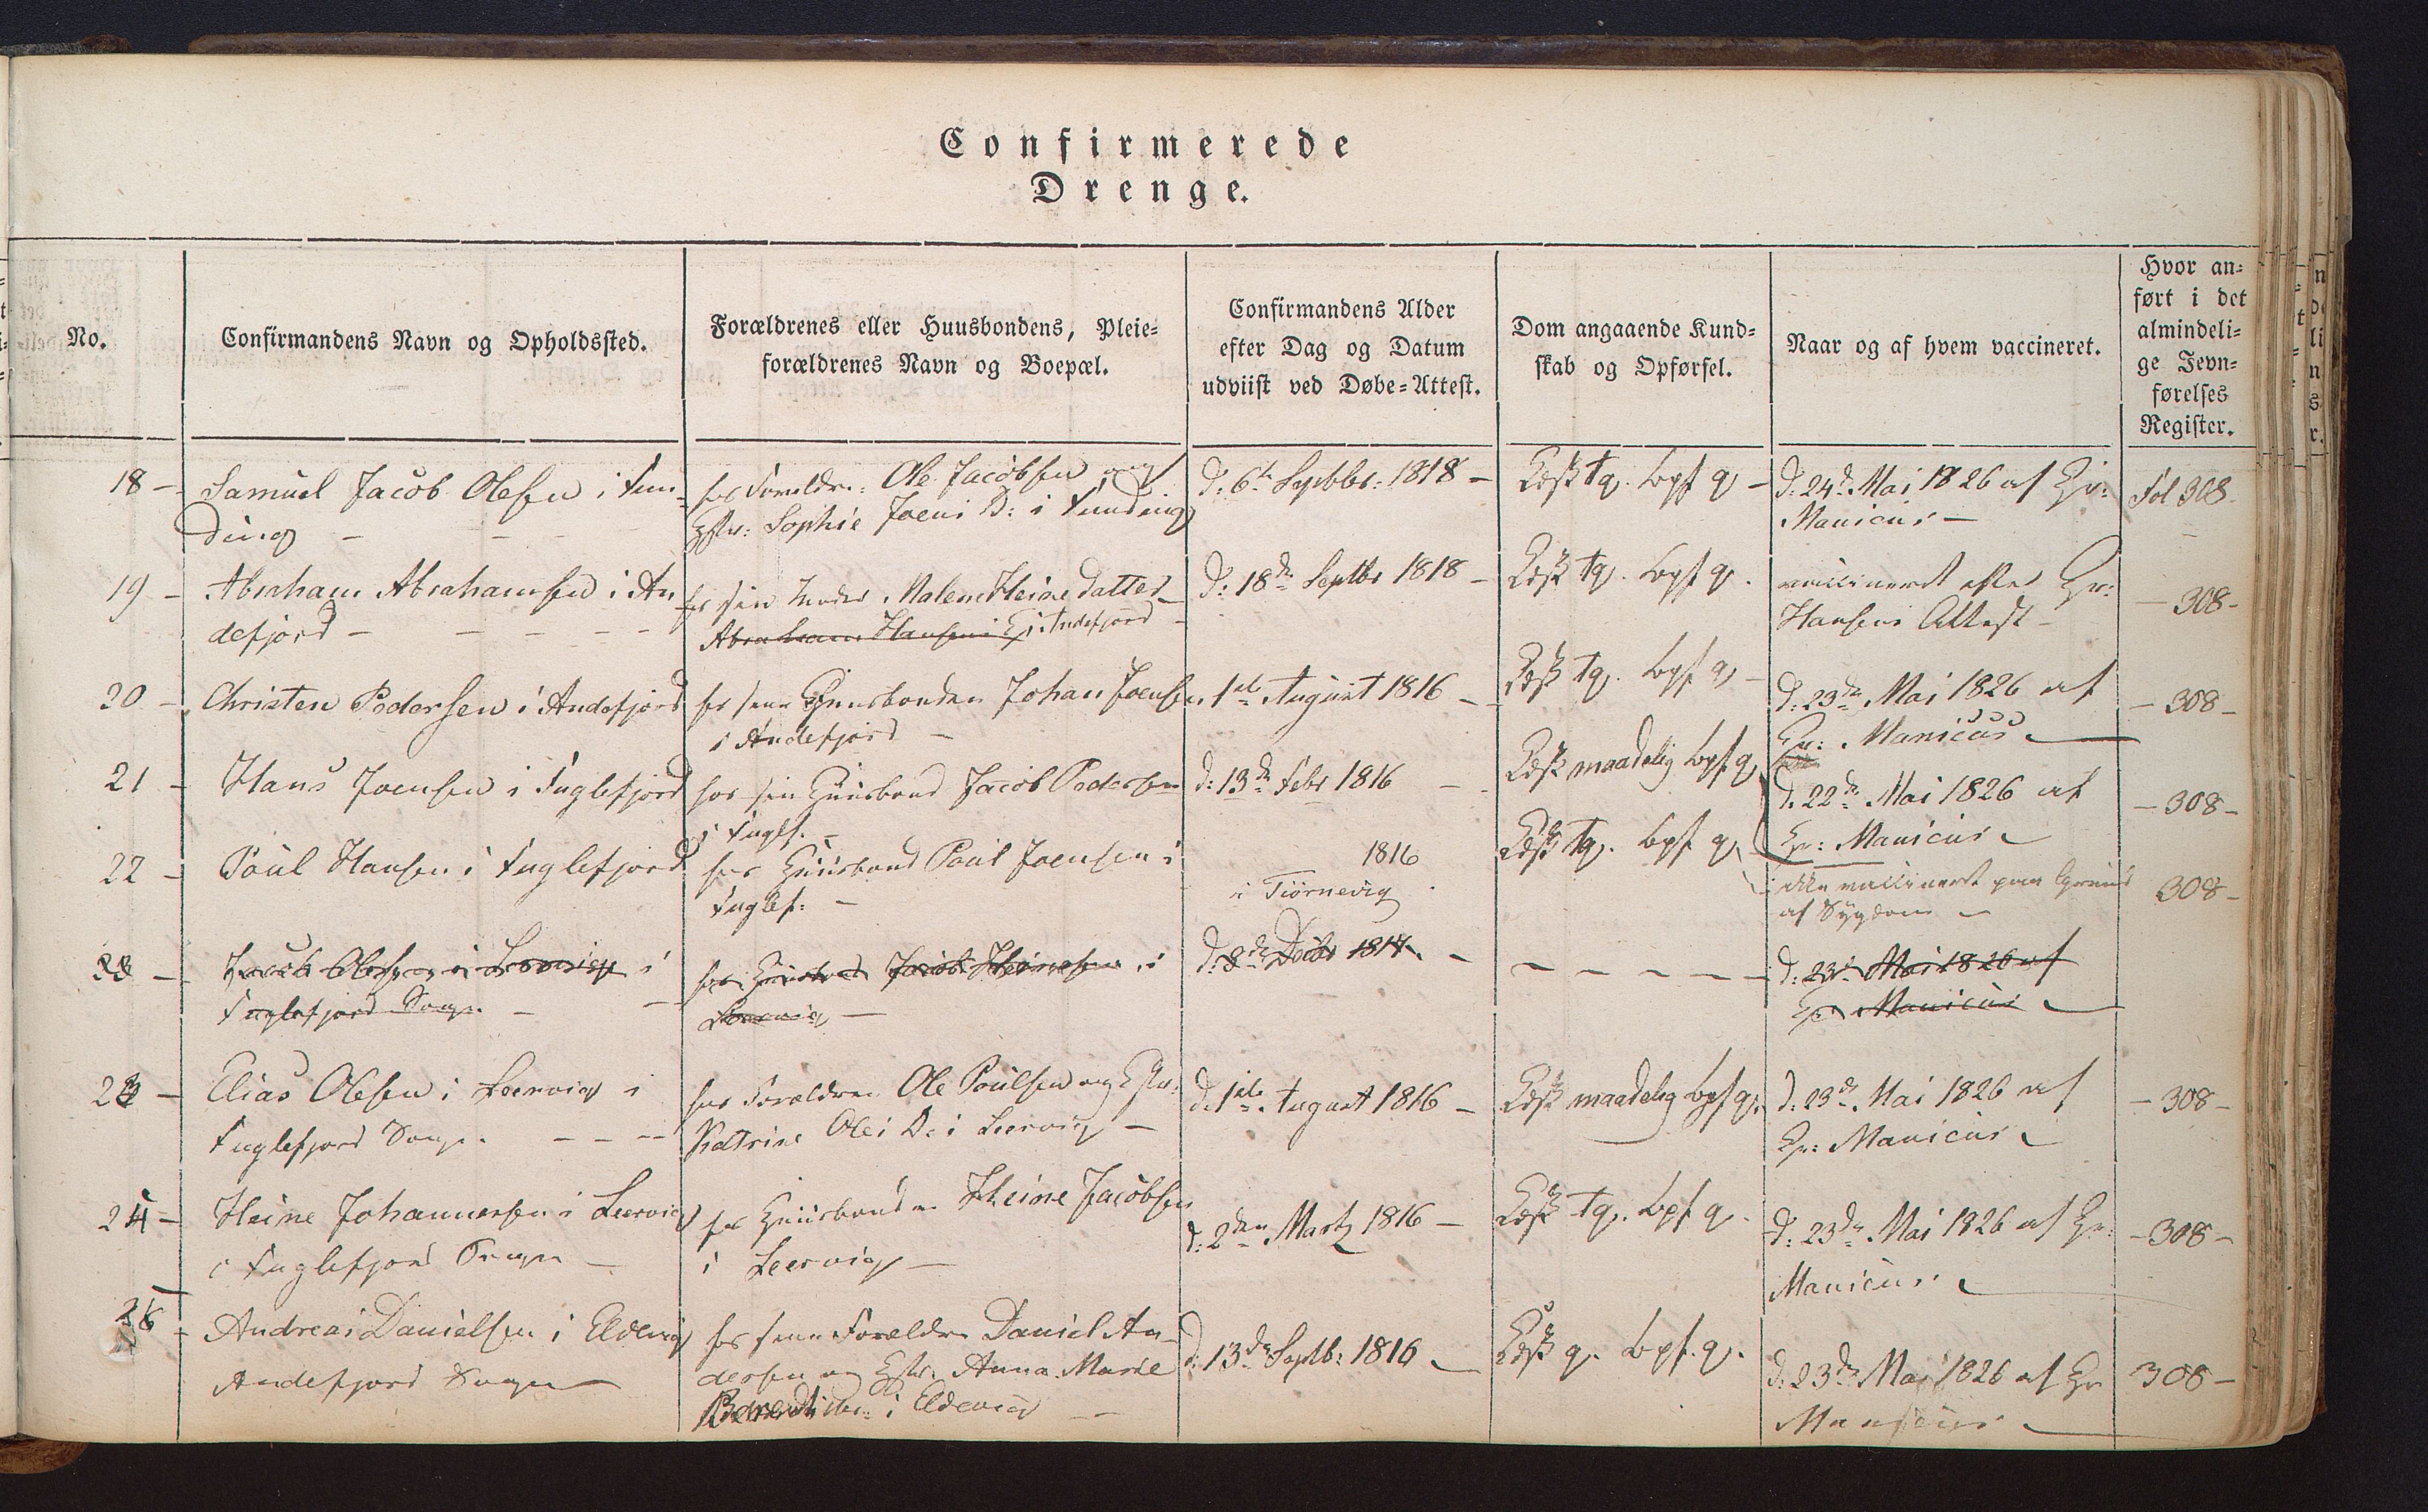 Confirmerede
Drenge.
No.
Confirmandens Navn og Opholdssted.
Forældrenes eller Huusbondens, Pleie-
forældrenes Navn og Boepæl.
Confirmandens Alder
efter Dag og Datum
udviist ved Døbe-Attest.
Dom angaaende Kund-
skab og Opførsel.
Naar og af hvem vaccineret.
Hvor an-
ført i det
almindeli-
ge Jevn-
førelses
Register.
18 -
Samuel Jacob Olesen i Fun-
ding
hos Foreldre: Ole Jacobsen og
Hstr: Sophie Joens D: i Funding
d: 6te Septbr: 1818 -
tg. Opf g -
d: 24de Mai 1826 af Hr:
Manicus -
Fol 308
19 -
Abraham Abrahamsen i An
defjord -
hos sin Moder Malene Heine datter
Abraham Hansens E i Andefjord -
d: 18de Septbr 1818 -
tg. Opf g.
vaccineret efter Hr:
Hansens Attest -
- 308 -
20 -
Christen Pedersen i Andefjord
hos sin Huusbonden Johan Joensen
i Andefjord -
1ste August 1816 -
tg. Opf g -
d: 23de Mai 1826 af
Hr: Manicus
- 308 -
21 -
Hans Joensen i Fuglefjord
hos sin Huusbond Jacob Pedersen
i Fuglf. -
d: 13de Febr 1816 -
maadelig Opf g
d. 22de Mai 1826 af
Hr: Manicus
- 308 -
22 -
Poul Hansen i Fuglefjord
hos Huusbond Poul Joensen i
Fuglef: -
1816
i Tiørnevig
tg. Opf g
ikke vaccineret paa Grund
af Sygdom -
308 -
Jacob Olesen i Leervig i
Fuglefjord Sogn -
hos Huusbond Jacob Heinesen i
Leervig -
d: 8de Decbr 1814 -
d: 23de Mai 1826 af
Hr: Manicus
23 -
Elias Olesen i Leervig i
Fuglefjord Sogn. - - -
hos Forældre Ole Poulsen og Hstr:
Katrine Oles D: i Leervig -
d. 1ste August 1816 -
maadelig Opf g.
d. 23de Mai 1826 af
Hr: Manicus
- 308 -
24 -
Heine Johannesen i Leervig
i Fuglefjord Sogn -
hos Huusbonden Heine Jacobsen
i Leervig -
d: 2den Martz 1816 -
tg. Opf g.
d: 23de Mai 1826 af Hr:
Manicus
- 308 -
25 -
Andreas Danielsen i Eldevig
Andefjord Sogn
hos sine Forældre Daniel An-
dersen og Hstr. Anna Marie
i Eldevig -
d: 13de Septb: 1816
g. Opf. g.
d. 23de Mai 1826 af Hr
Manicus
308 -